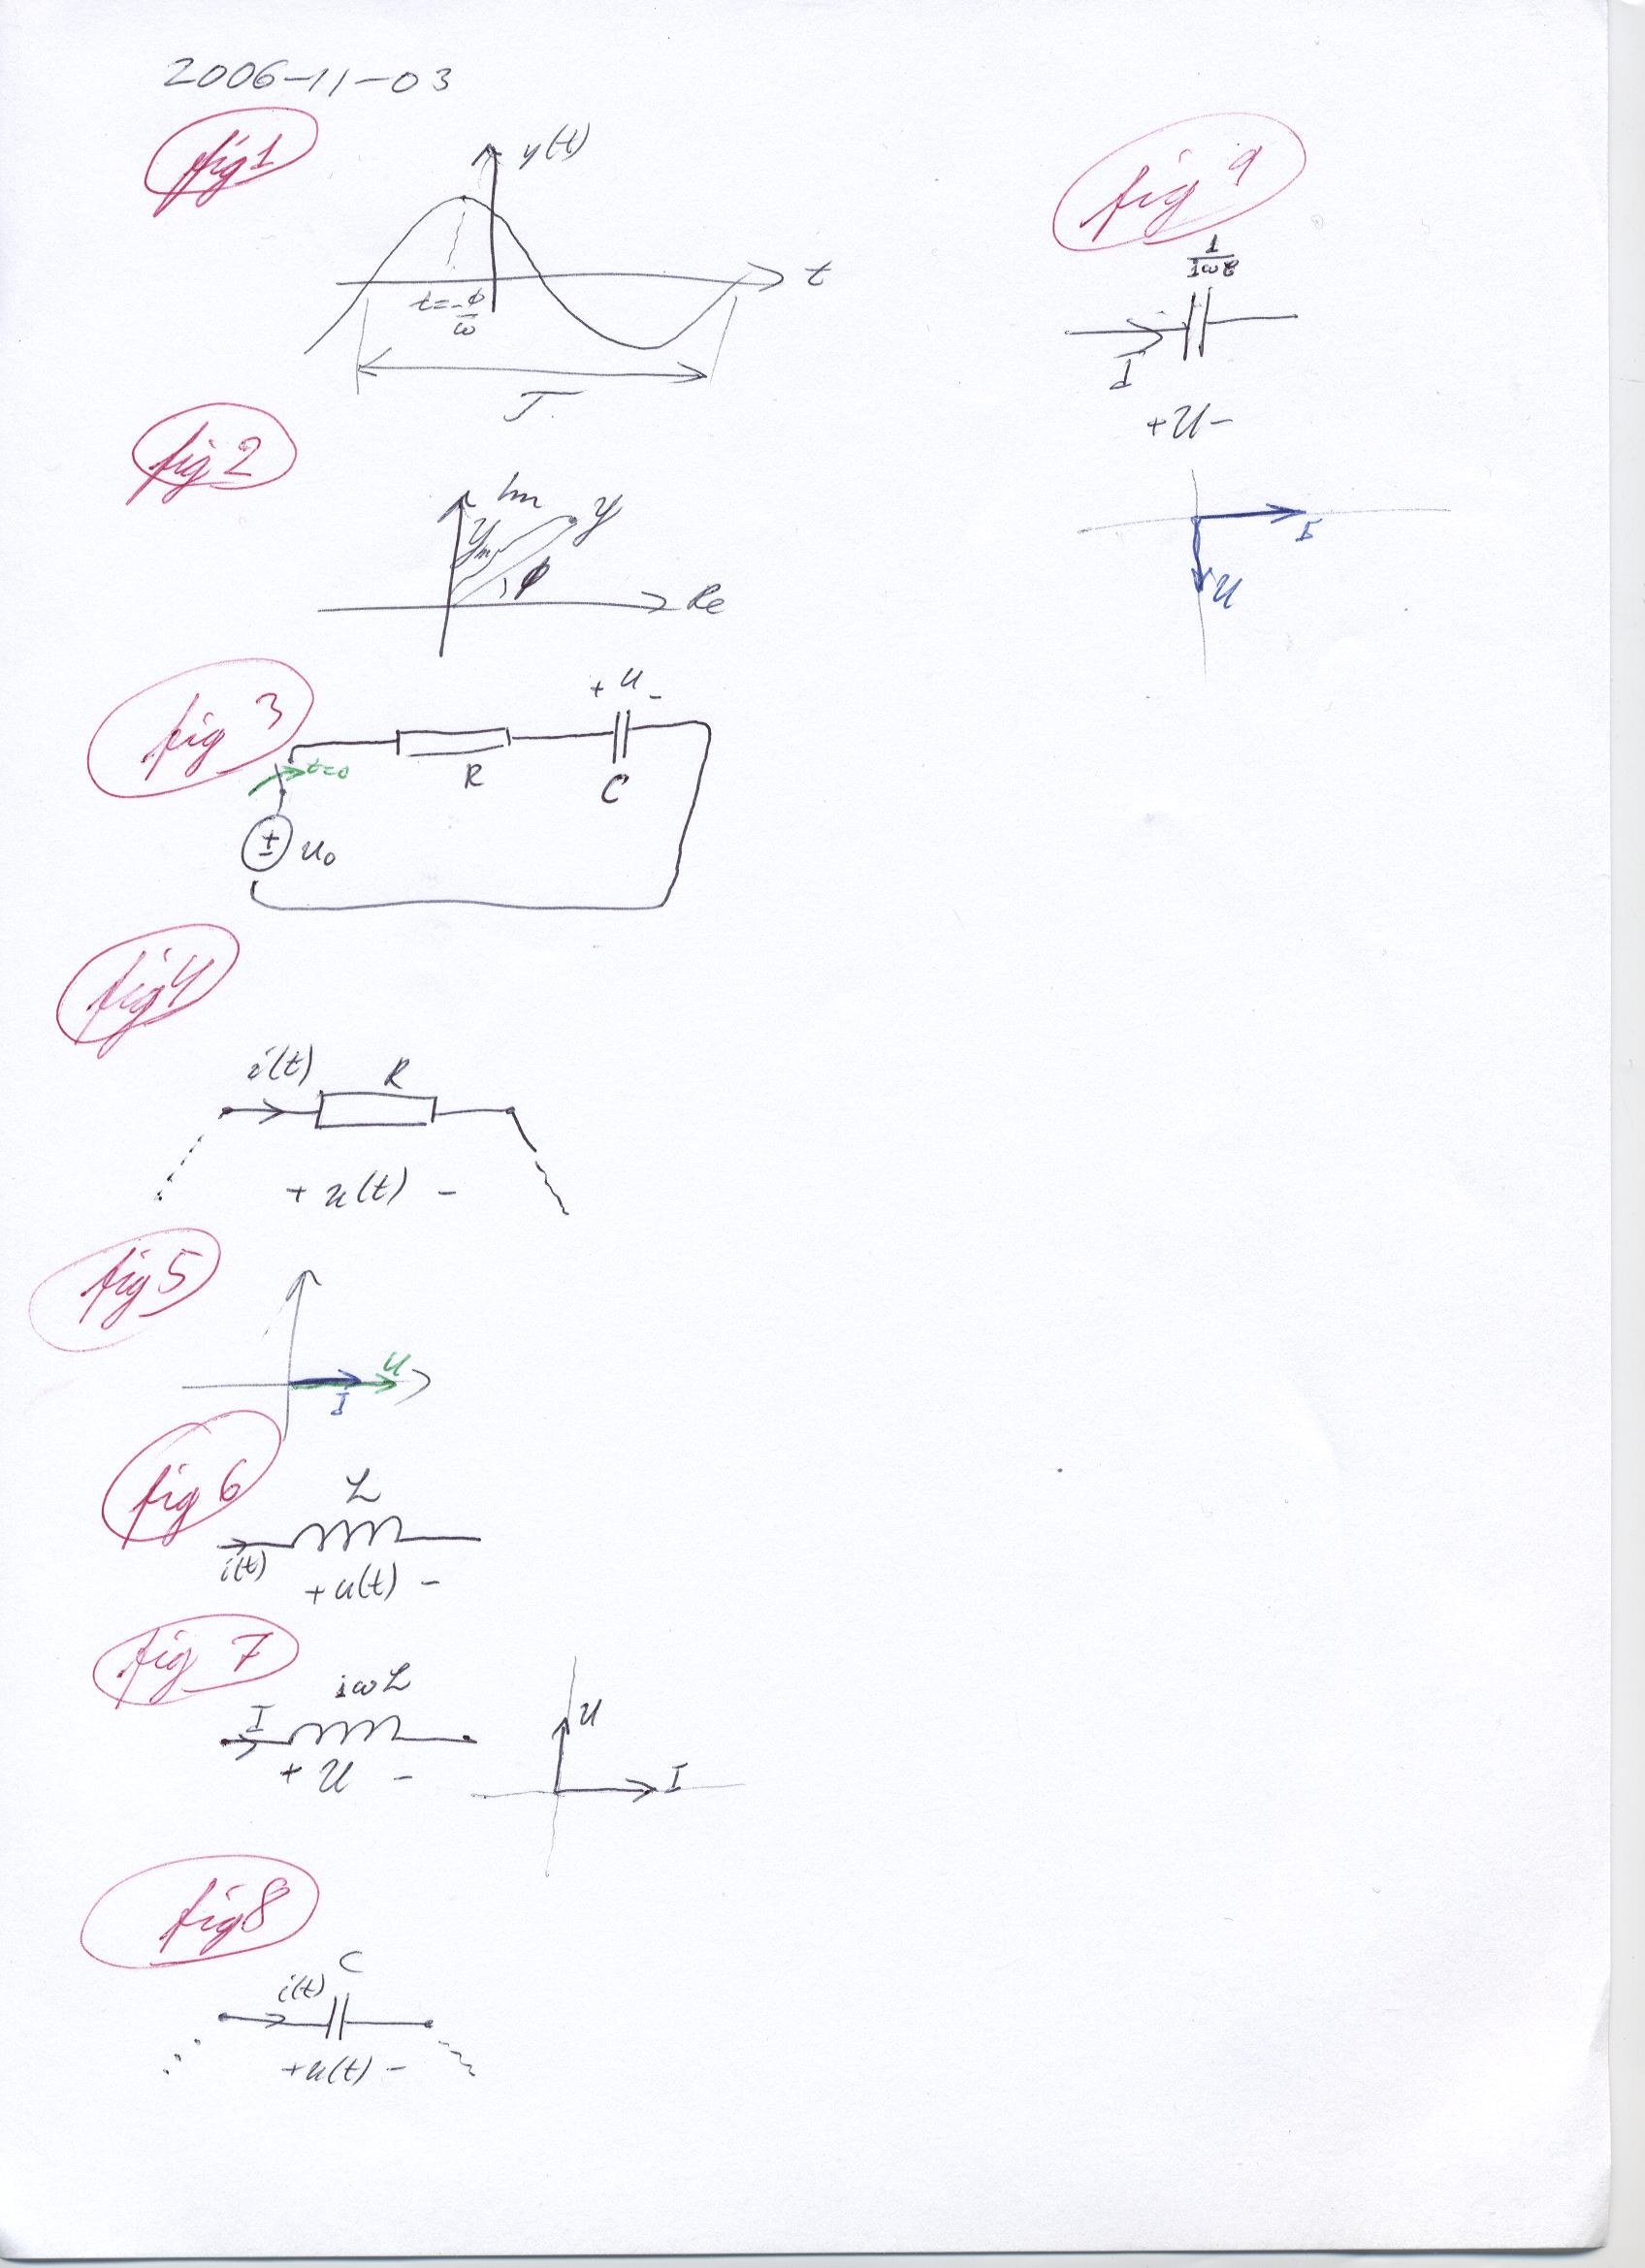 2006-11-03
fig 1
y(t)
t
t=-ϕ/ω
T
fig 2
Im
y
ym
ϕ
Re
fig 3
+ u -
t=0
R
C
±
u0
fig 4
i(t)
R
+ u(t) -
fig 5
U
I
fig 6
L
i(t)
+ u(t) -
fig 7
I
iωL
+ U -
U
I
fig 8
C
i(t)
+u(t) -
fig 9
1/iωC
I
+U-
I
U